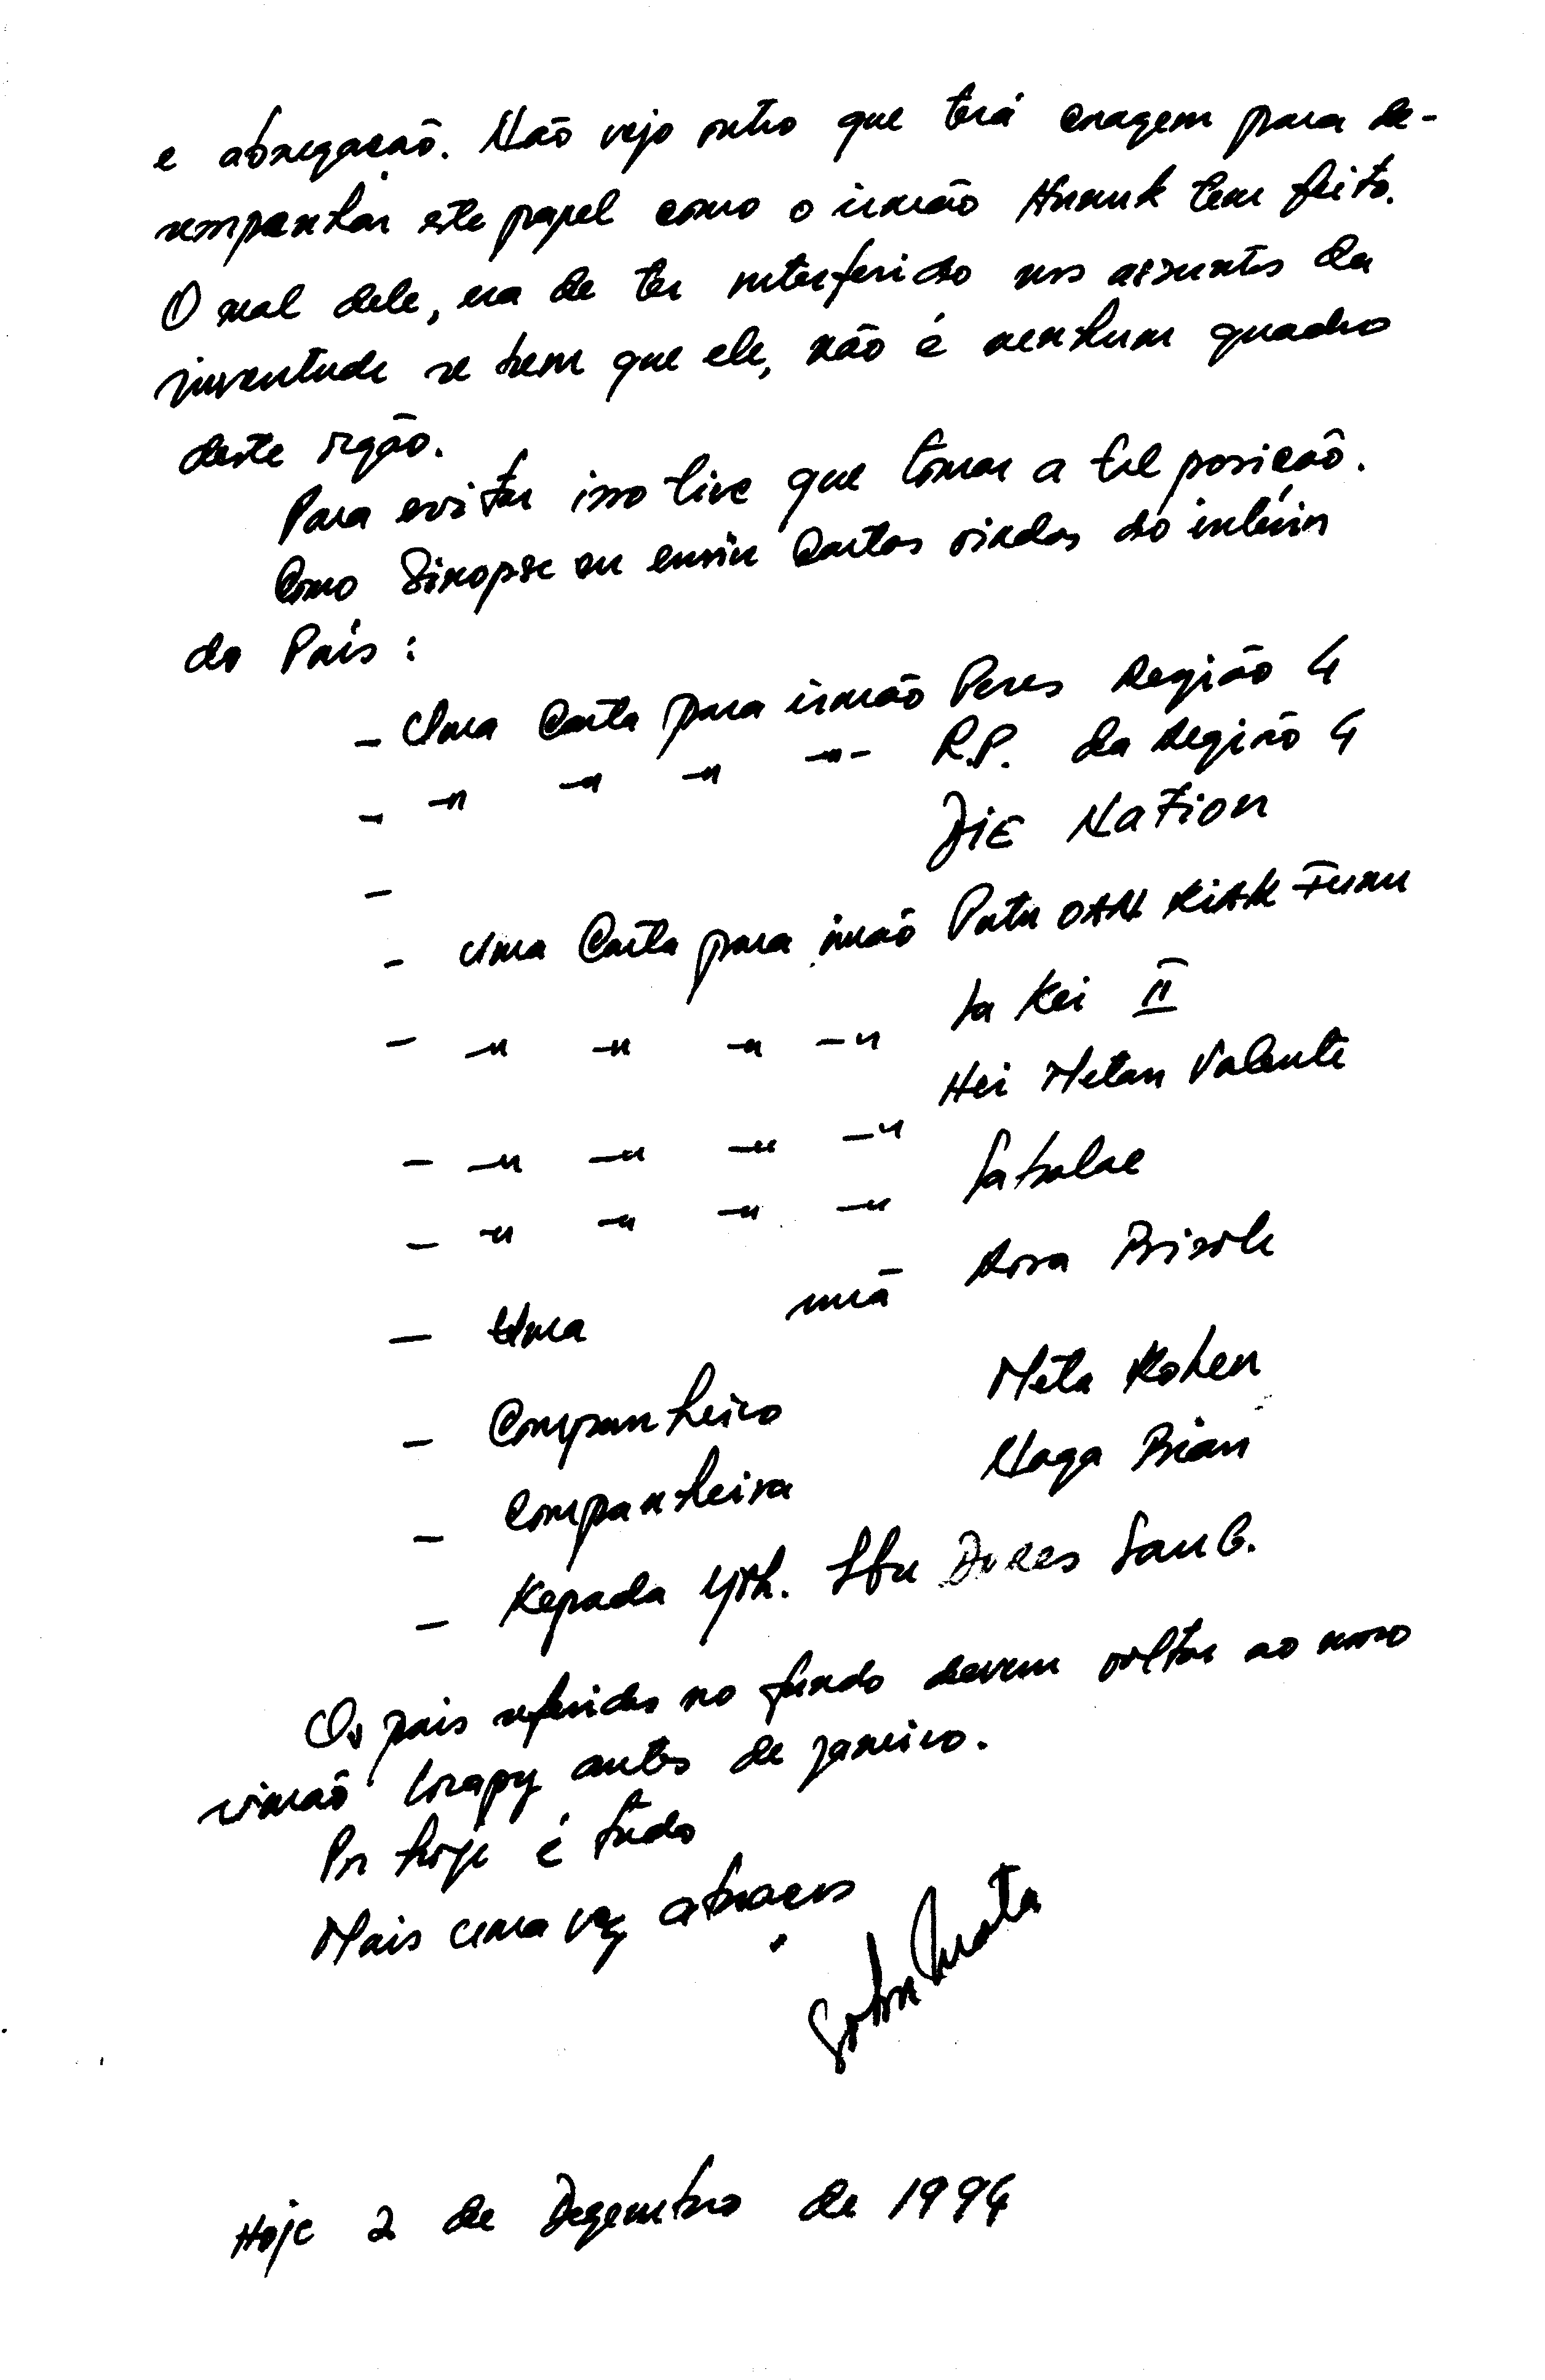 e abnegação. Não vejo outro que terá coragem para de-
sempenhar este papel como o irmão Hunuk tem feito.
O mal dele, era de ter interferido nos assuntos da
juventude se bem que ele, não é nenhum quadro
deste orgão.
Para evitar isso tive que tomar a tal posição.
Como Sinopse ou envio Cartas vindas do interior
do País :
- Uma Carta para irmão Peres Região 4
- -"- -"- -"- -"- R.P. da Região 4
- DiE NaTion
- Uma Carta para irmão Putu OAN KiAK Funu
- -" -" -" -" Sa Kei II
- -" -" -" -" Hei Metan Valente
- -" -" -" -" Sabalae
- Uma irmã Rosa Brisole
- Companheiro Meta Kohen
- Companheira Naga Brian
- Kepada Yth. Ibu Dolles San G.
Os pais referidos no fundo devem voltar ao nosso
irmão Lorapy antes de janeiro.
Por hoje é tudo
Mais uma vez abraços
Hoje 2 de Dezembro de 1994